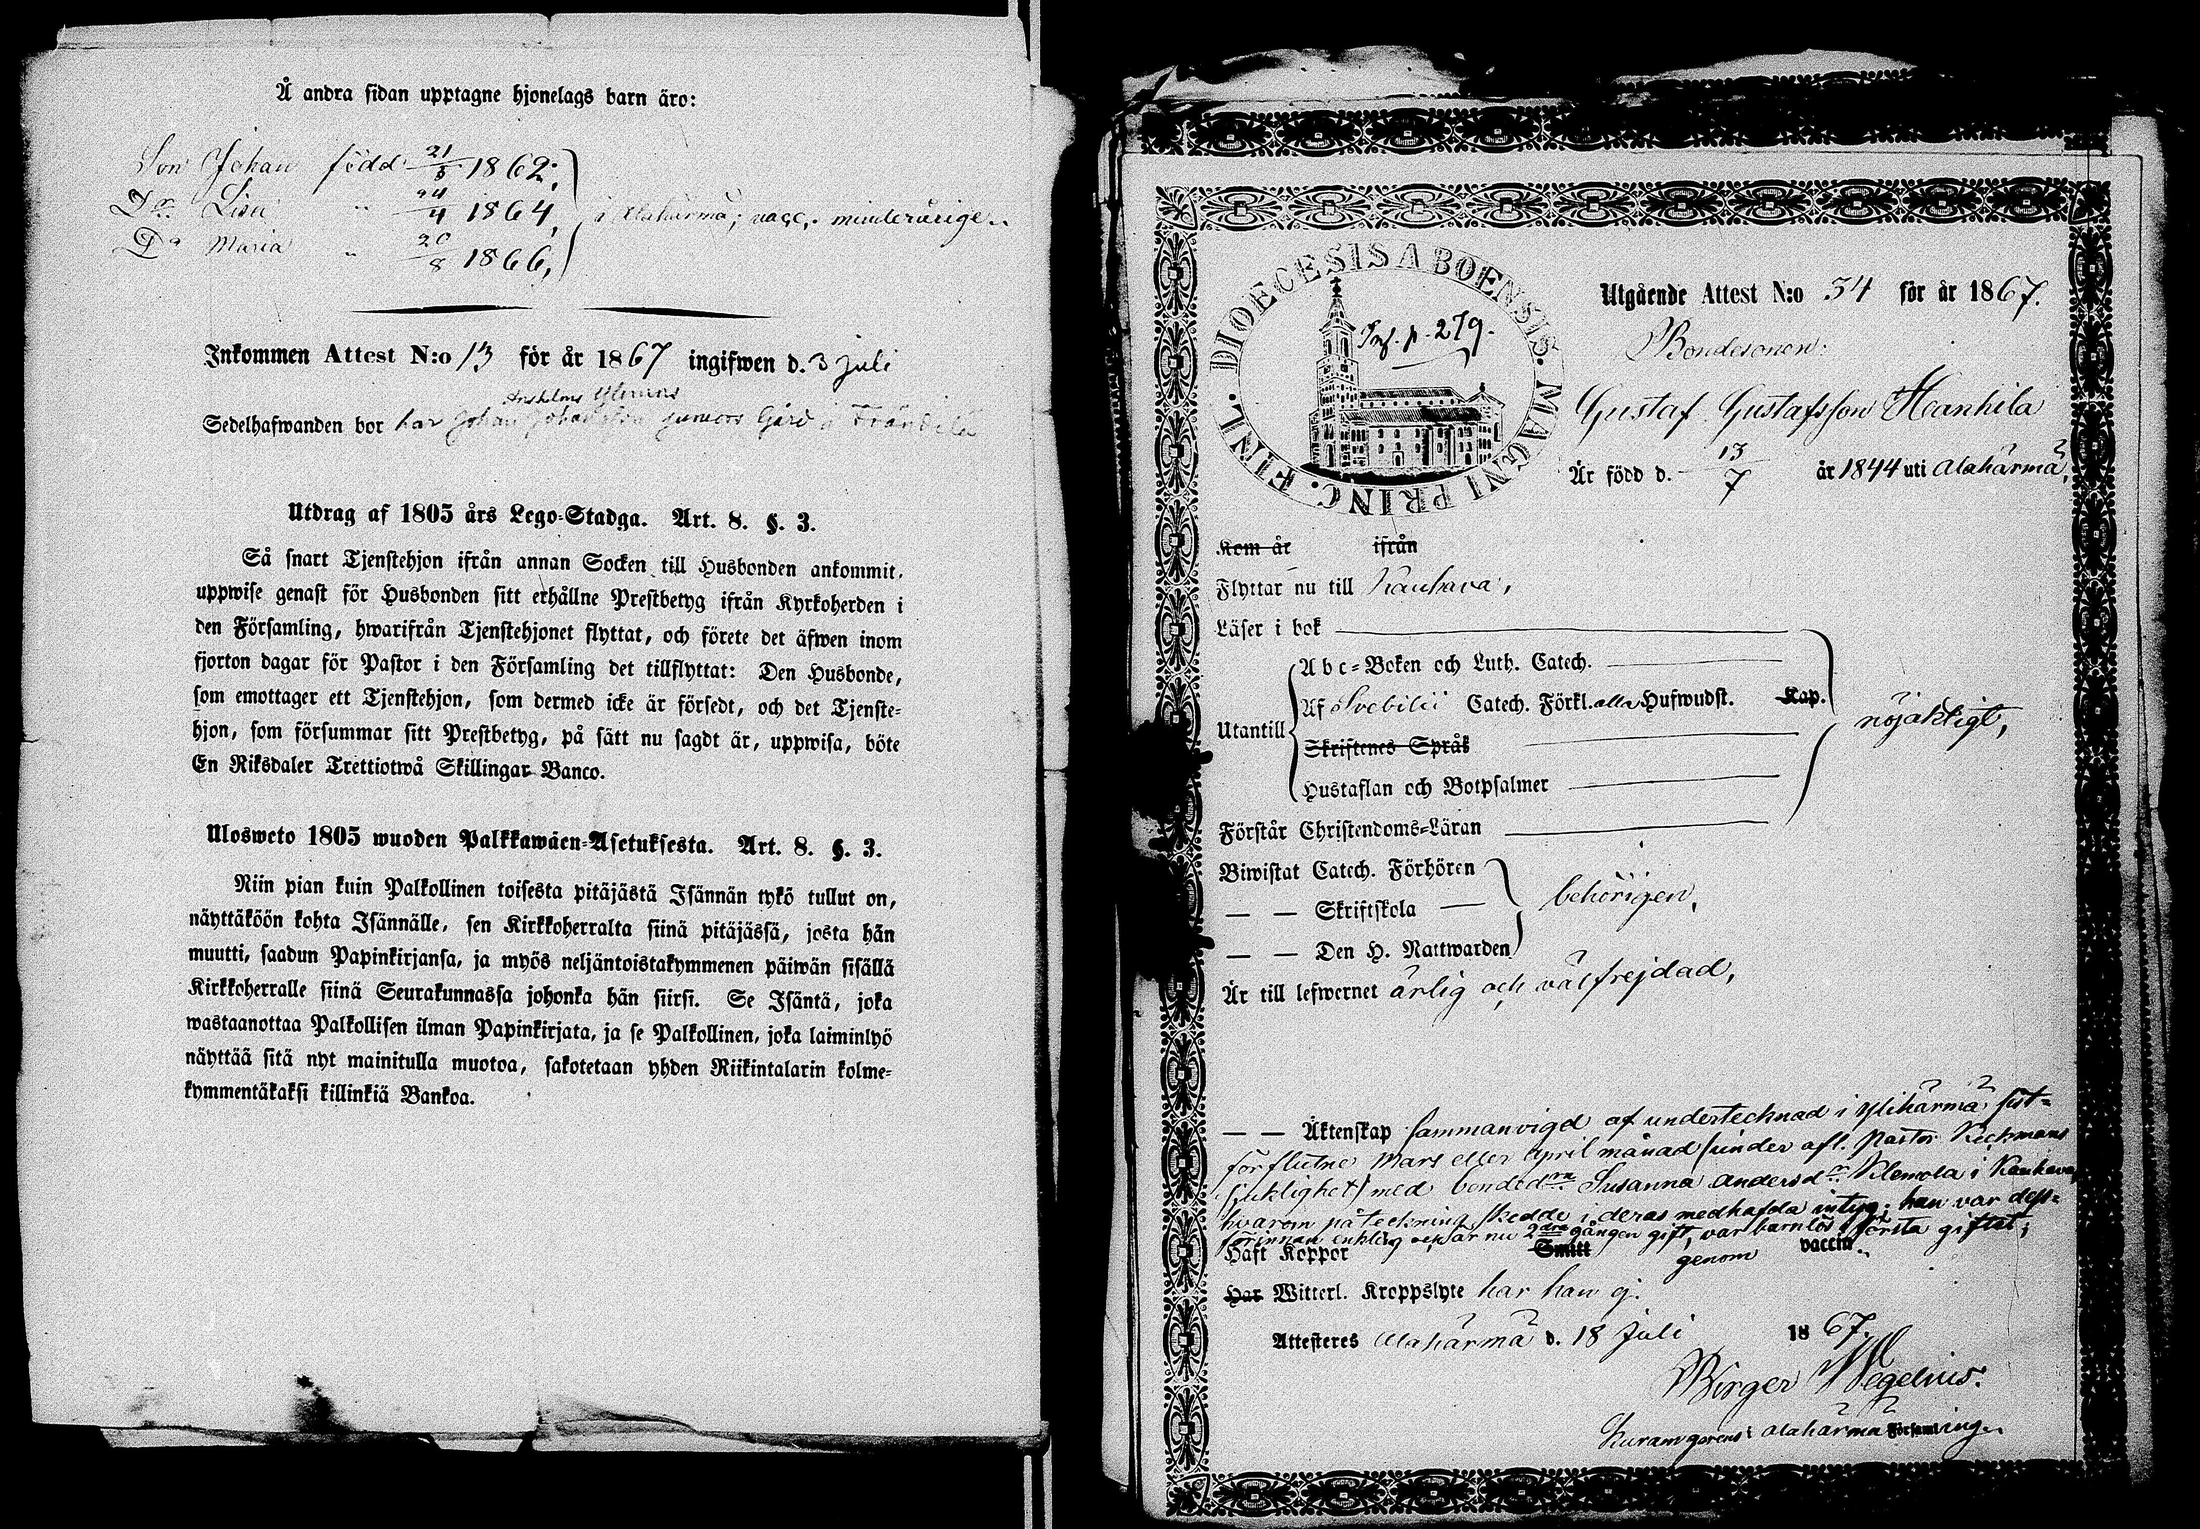 Å andra sidan upptagne hjonelags barn äro:
Son Johan född 21/5 1862;
Dr. Lisa " 24/4 1864, i Alahärmä; vacc. minderårige.
Da Maria " 20/8 1866,
Inkommen Attest N:o 13 för år 1867 ingifwen d. 3 Juli
Sedelhafwanden bor har Johan gård i
Utdrag af 1805 års Lego-Stadga. Art. 8. §. 3.
Så snart Tjenstehjon ifrån annan Socken till Husbonden ankommit,
uppwise genast för Husbonden sitt erhållne Prestbetyg ifrån Kyrkoherden i
den Församling, hwarifrån Tjenstehjonet flyttat, och förete det äfwen inom
fjorton dagar för Pastor i den Församling det tillflyttat: Den Husbonde,
som emottager ett Tjenstehjon, som dermed icke är försedt, och det Tjenste-
hjon, som försummar sitt Prestbetyg, på sätt nu sagdt är, uppwisa, böte
En Riksdaler Trettiotwå Skillingar Banco.
Ulosweto 1805 wuoden Palkkawäen-Asetuksesta. Art. 8. §. 3.
Niin pian kuin Palkollinen toisesta pitäjästä Isännän tykö tullut on,
näyttäköön kohta Isännälle, sen Kirkkoherralta siinä pitäjässä, josta hän
muutti, saadun Papinkirjansa, ja myös neljäntoistakymmenen päiwän sisällä
Kirkkoherralle siinä Seurakunnassa johonka hän siirsi. Se Isäntä, joka
wastaanottaa Palkollisen ilman Papinkirjata, ja se Palkollinen, joka laiminlyö
näyttää sitä nyt mainitulla muotoa, sakotetaan yhden Riikintalarin kolme-
kymmentäkaksi killinkiä Bankoa.
DIOECESIS ABOENSIS. MAGNI PRINC. FINL.
Inf. p. 279.
Utgående Attest N:o 54 för år 1867.
Bondesonen:
Gustaf Gustafsson Haankila
Är född d. 13/7 år 1844 uti Alahärmä,
Kom år ifrån
Flyttar nu till Kauhava,
Läser i bok
Abc-Boken och Luth. Catech.
Utantill Af Svebilii Catech. Förkl. alla Hufwudst. Kap. nöjaktigt,
Skriftenes Språk
Hustaflan och Botpsalmer
Förstår Christendoms-Läran
Biwistat Catech. Förhören
— — Skriftskola behörigen,
— — Den H. Nattwarden
Är till lefwernet ärlig och välfrejdad,
— — Äktenskap sammanvigd af undertecknad i Ylihärmä sist-
förflutne Mars eller April månad (under afl. Pastor Keckmans
sjuklighet) med bondedrn Susanna Andersdr Klemola i Kauhava,
hvarom påteckning skedde i deras medhafda intyg; han var dess-
förinnan enkling och är nu 2dra gången gift, var barnlös i första giftet;
Haft Koppor Smitt genom vaccin.
Har Witterl. Kroppslyte har han ej.
Attesteres Alahärmä d. 18 Juli 1867.
Birger Wegelius.
Kuram gerens i Alahärmä Församling.